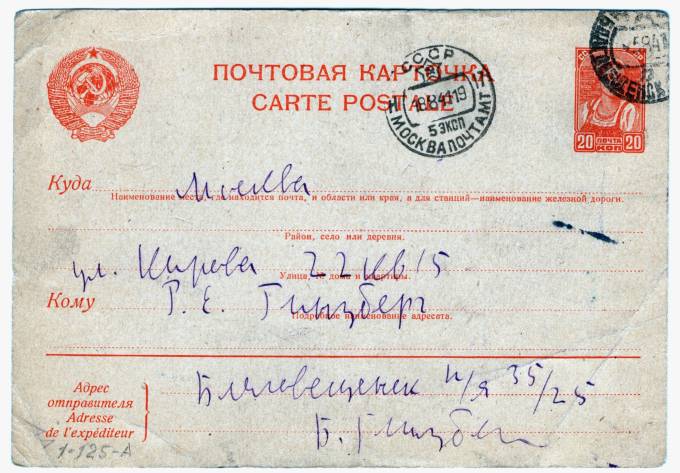 ПОЧТОВАЯ КАРТОЧКА
CARTE POSTALE
СССР
МОСКВА ПОЧТАМТ
5 ЭКСП
20 ПОЧТА 20
КОП
Куда Москва
Наименование места, где находится почта, и области или края, а для станций—наименование железной дороги.
Район, село или деревня.
ул. Кирова 22 кв 15
Улица, № дома и квартиры.
Кому Р. Е. Гинзберг
Подробное наименование адресата.
Адрес
отправителя
Adresse
de l'expéditeur
Благовещенск п/я 35/25
Б. Гинзберг
1-125-А